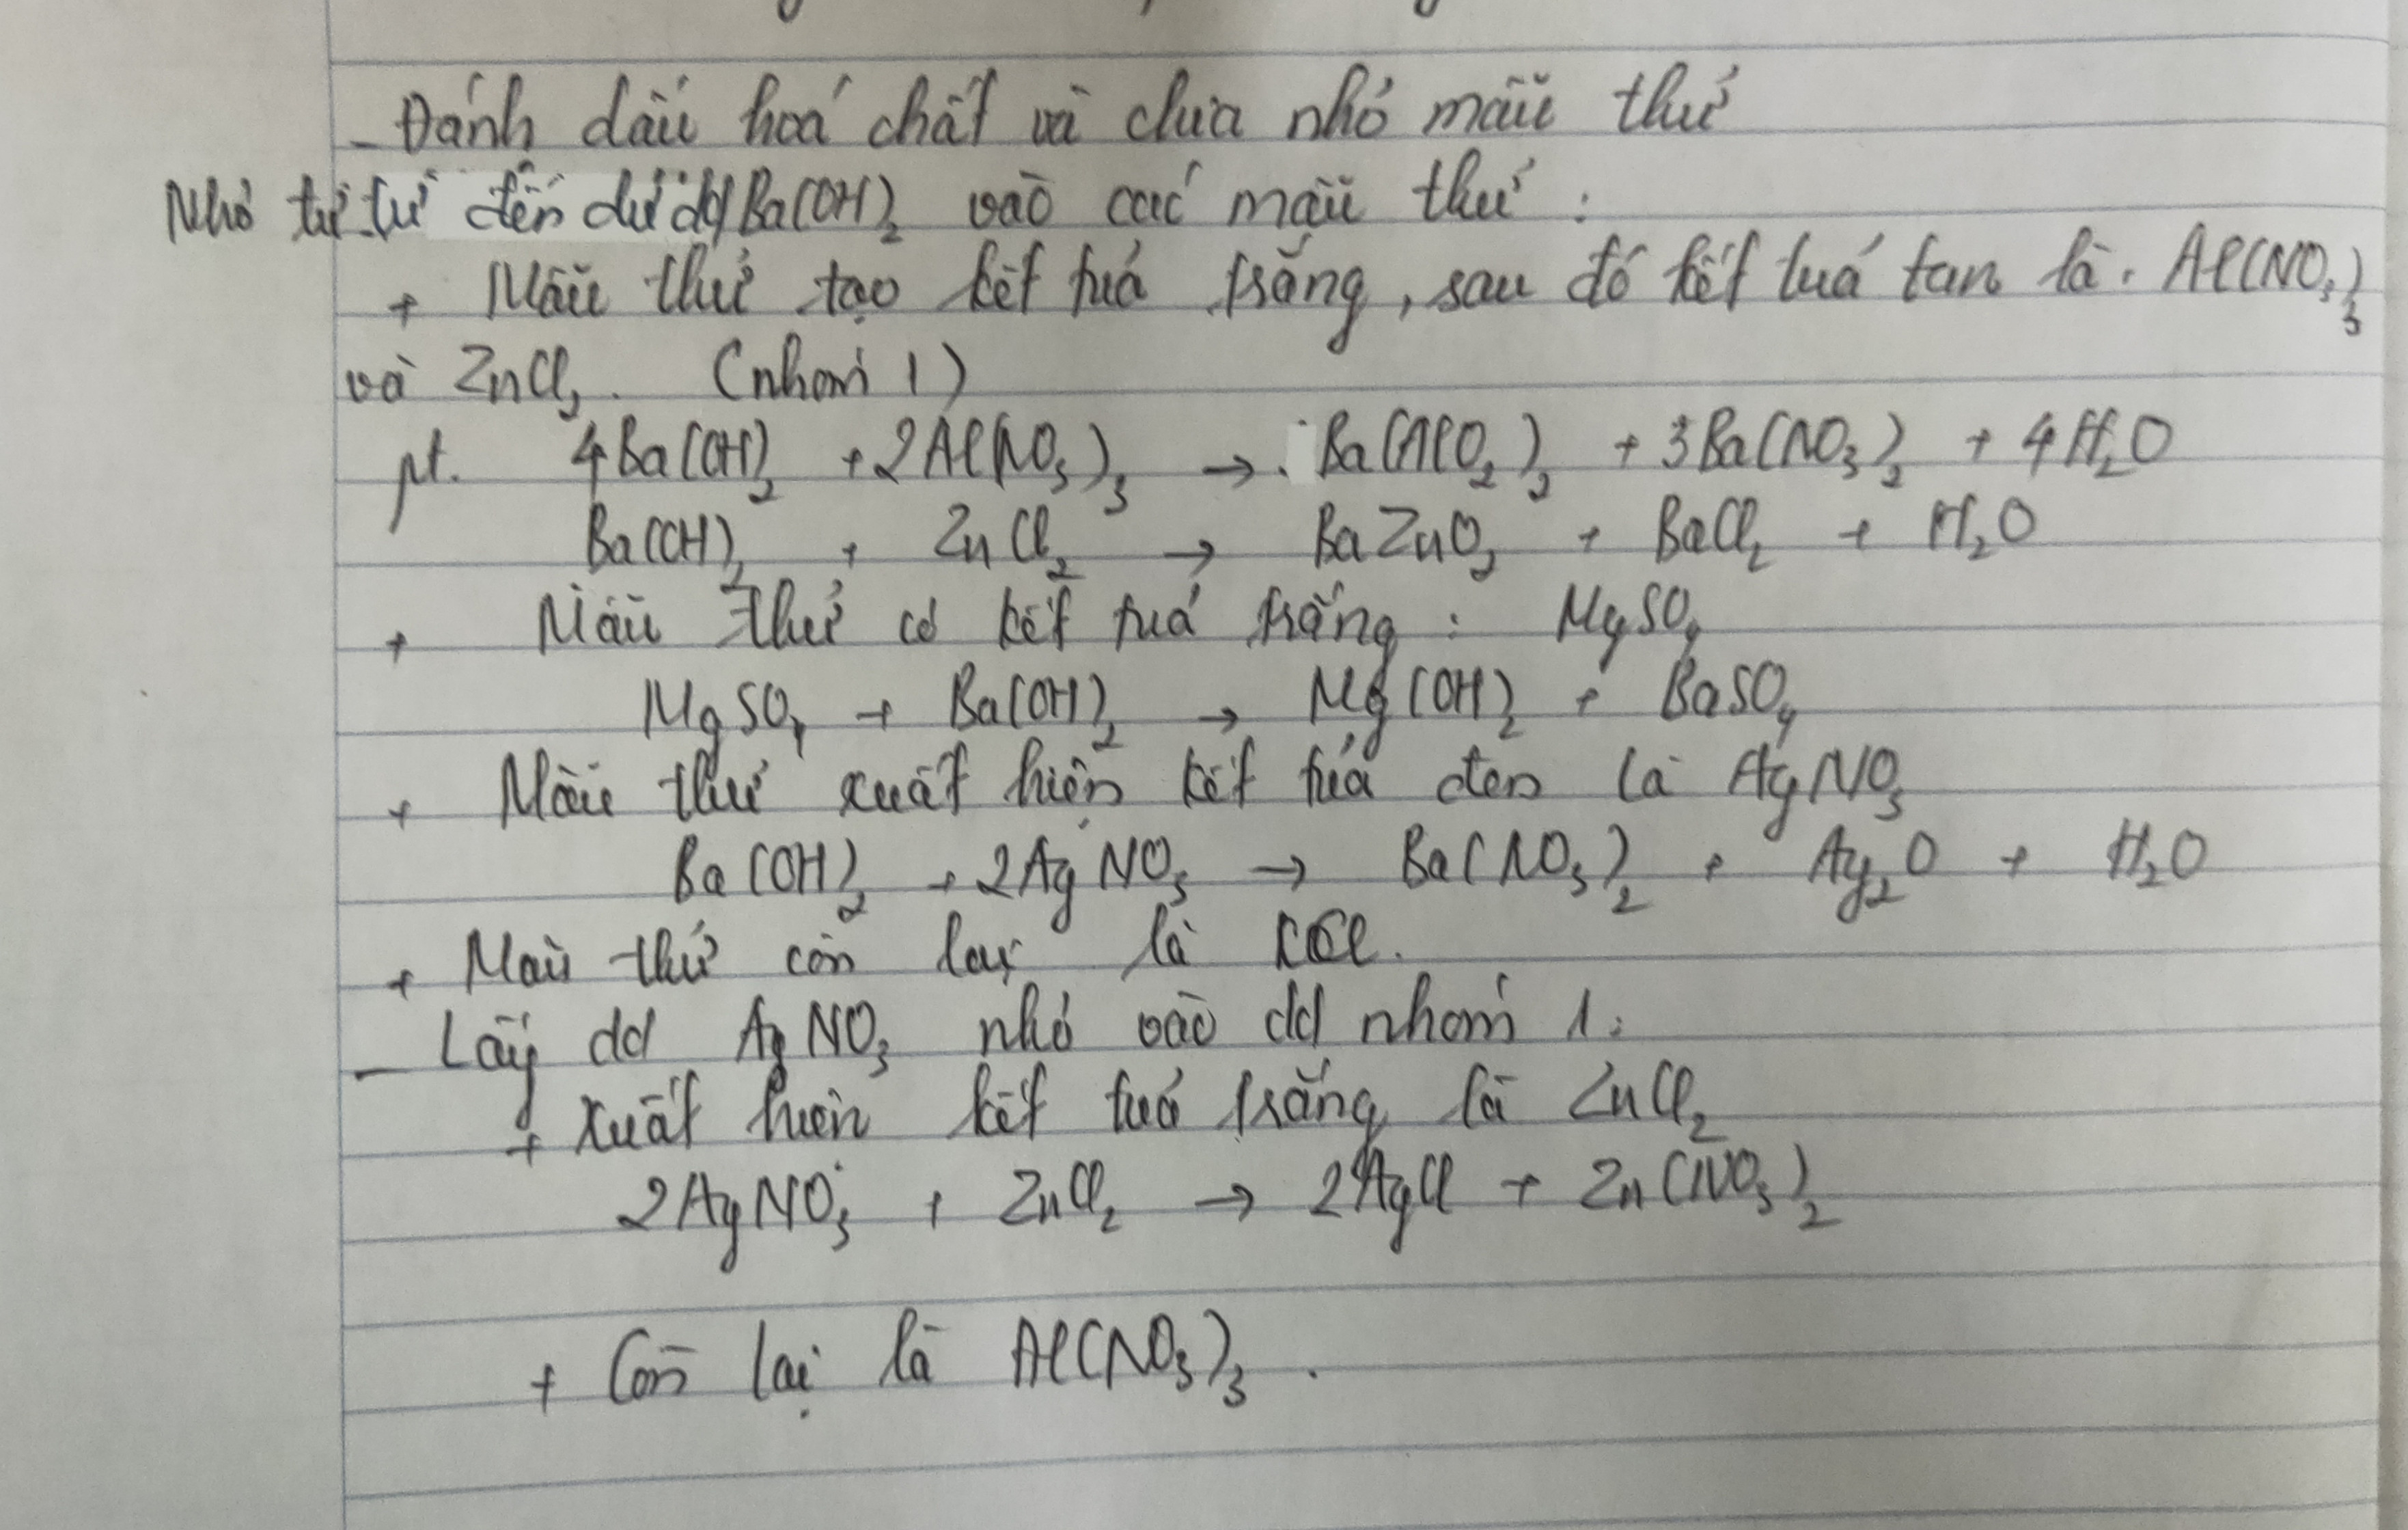 - Đánh dấu hoá chất và chia nhỏ mẫu thử
Nhỏ từ từ đến dư dd Ba(OH)₂ vào các mẫu thử :
+ Mẫu thử tạo kết tủa trắng, sau đó kết tủa tan là : Al(NO₃)₃
và ZnCl₂. (nhóm 1)
pt. 4Ba(OH)₂ + 2Al(NO₃)₃ → Ba(AlO₂)₂ + 3Ba(NO₃)₂ + 4H₂O
Ba(OH)₂ + ZnCl₂ → BaZnO₂ + BaCl₂ + H₂O
+ Mẫu thử có kết tủa trắng : MgSO₄
MgSO₄ + Ba(OH)₂ → Mg(OH)₂ + BaSO₄
+ Mẫu thử xuất hiện kết tủa đen là AgNO₃
Ba(OH)₂ + 2AgNO₃ → Ba(NO₃)₂ + Ag₂O + H₂O
+ Mẫu thử còn lại là KCl.
- Lấy dd AgNO₃ nhỏ vào dd nhóm 1 :
+ Xuất hiện kết tủa trắng là ZnCl₂
2AgNO₃ + ZnCl₂ → 2AgCl + Zn(NO₃)₂
+ Còn lại là Al(NO₃)₃.